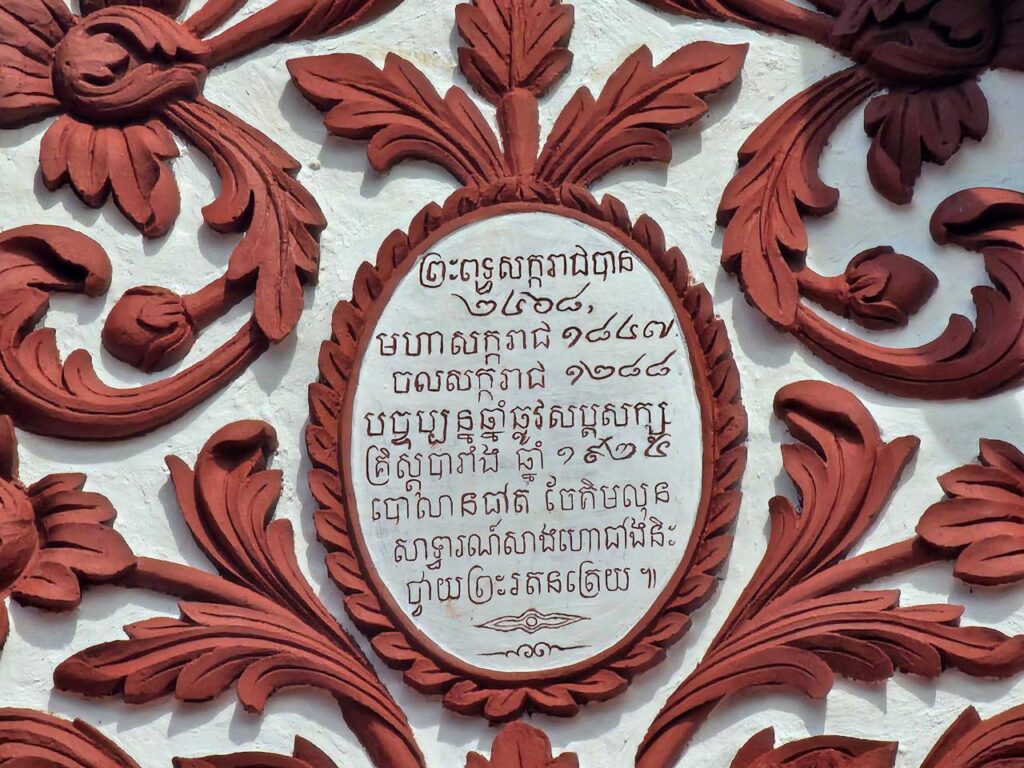 ព្រះពុទ្ធសក្ករាជបាន
២៤៦៨,
មហាសក្ករាជ ១៨៤៧
ចលសក្ករាជ ១២៨៨
បច្ចុប្បន្នឆ្នាំឆ្លូវសប្តសក្ស
គ្រឹស្តបារាំង ឆ្នាំ ១៩២៥
ចៃគិមលុន
សាទ្ធារណ៍សាងហោជាងនិះ
ថ្វាយព្រះរតនត្រេយ ៕